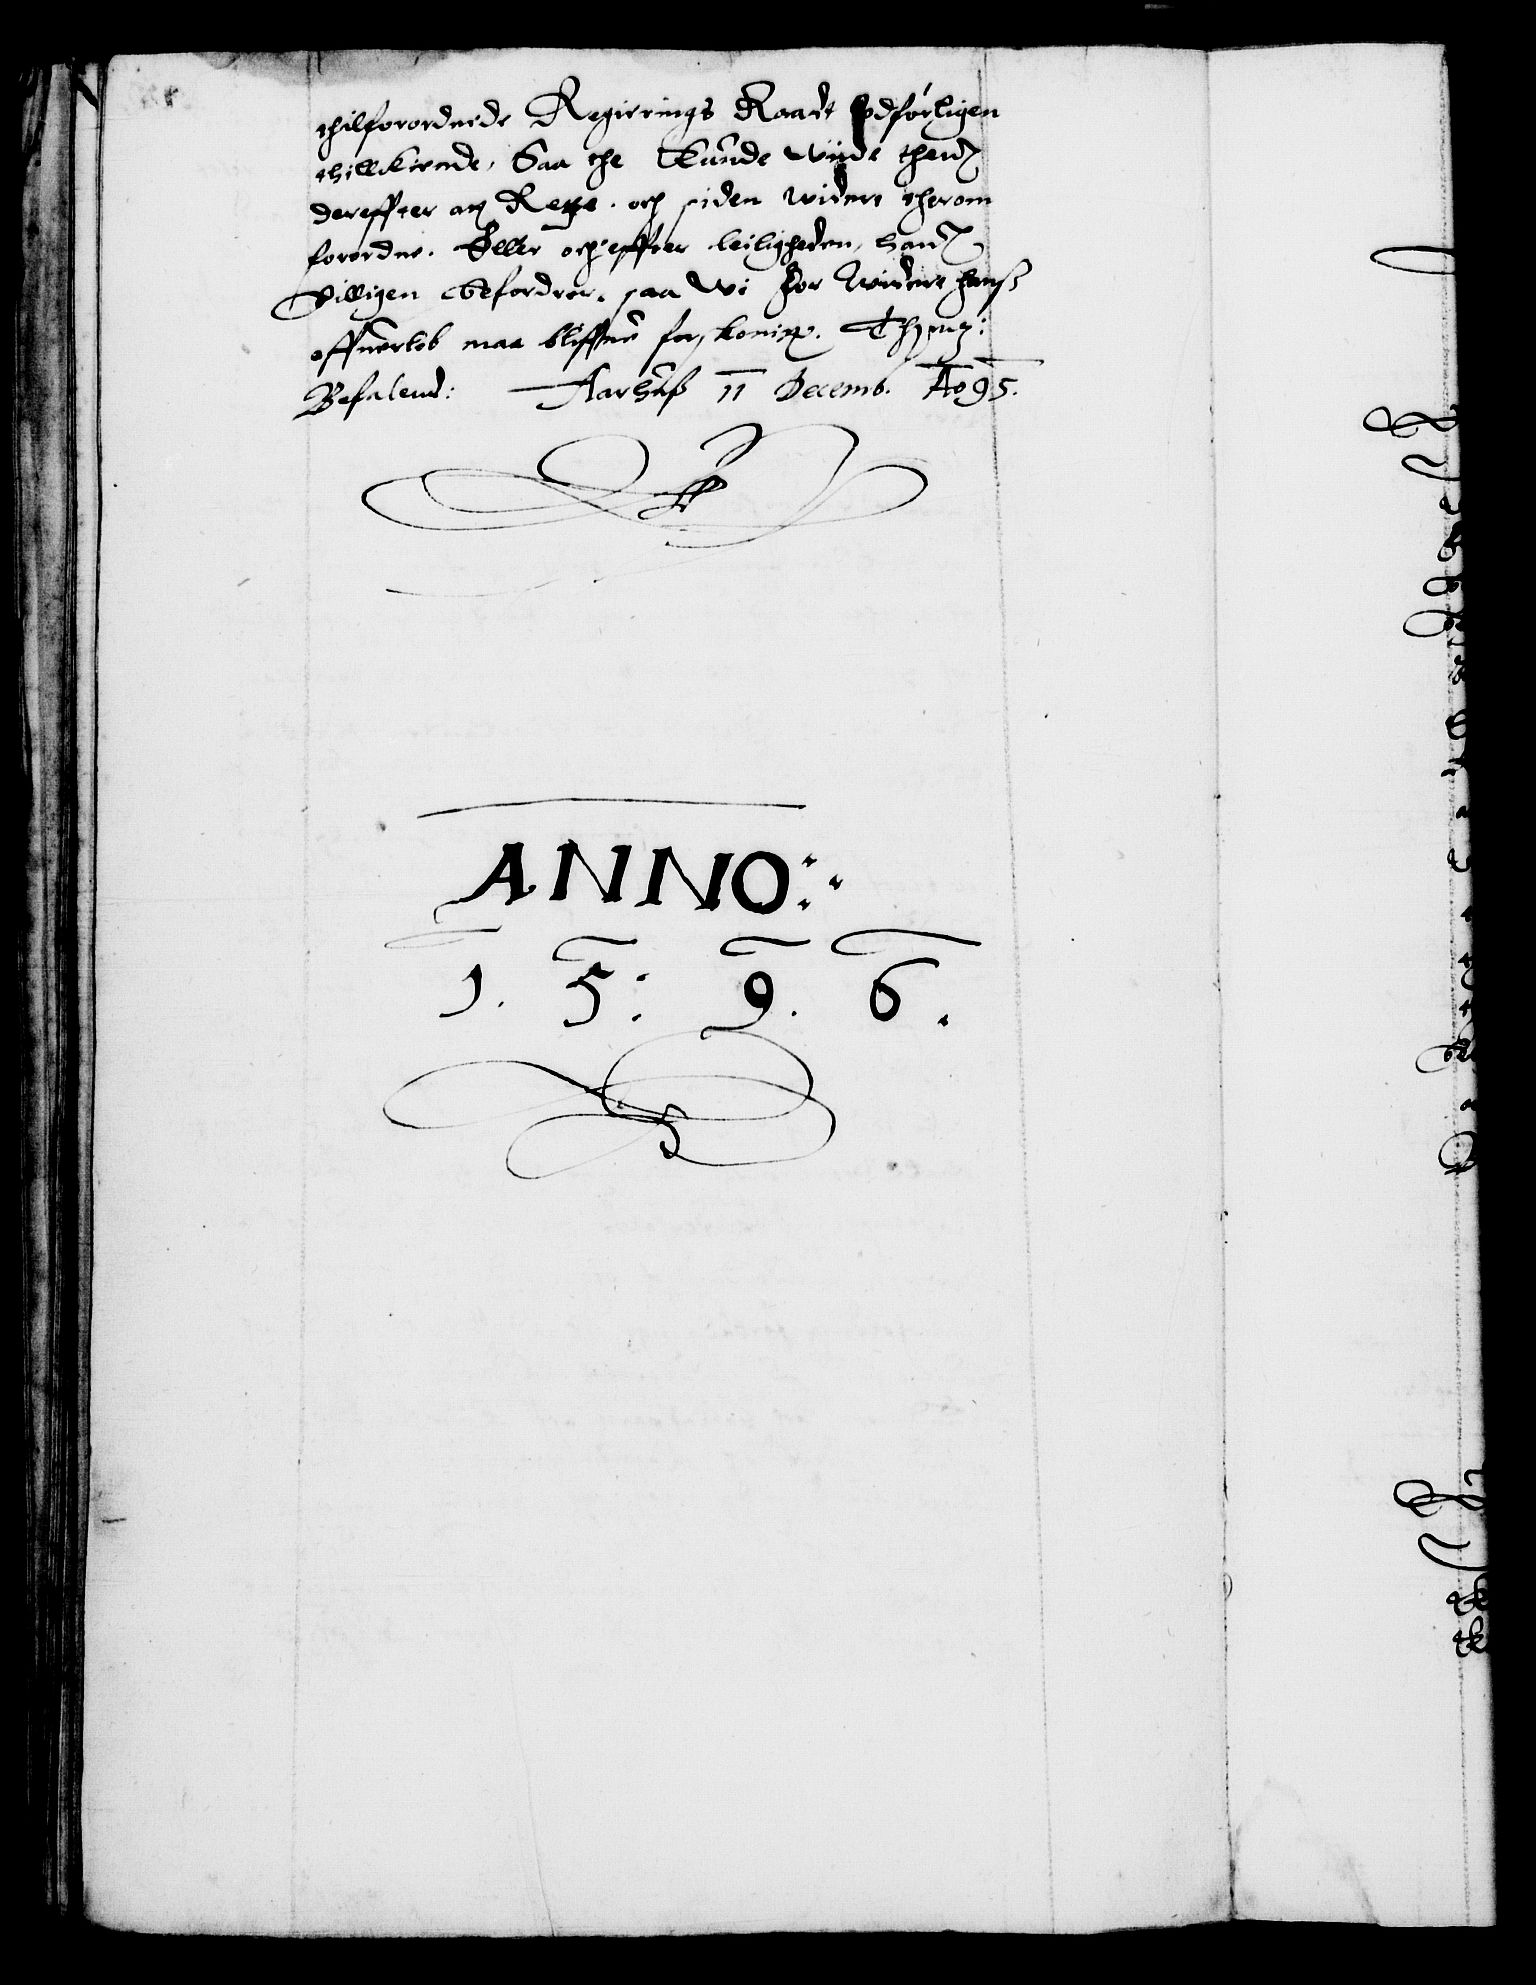 thilforordnede Regierings Raadt Vdförligen
thillkiende, Saa the Kunde Wiide thend
dereffter at Rette. och siden Widere therom
forordne. Eller och effter leiligheden, hand
billigen befordrer. saa Wi for Widere hans
offuerløb maa bliffue forskonit. Thømg:
Befalend: Aarhuß 11 Decemb. Ao 95.
ANNO:
1. 5: 9. 6.